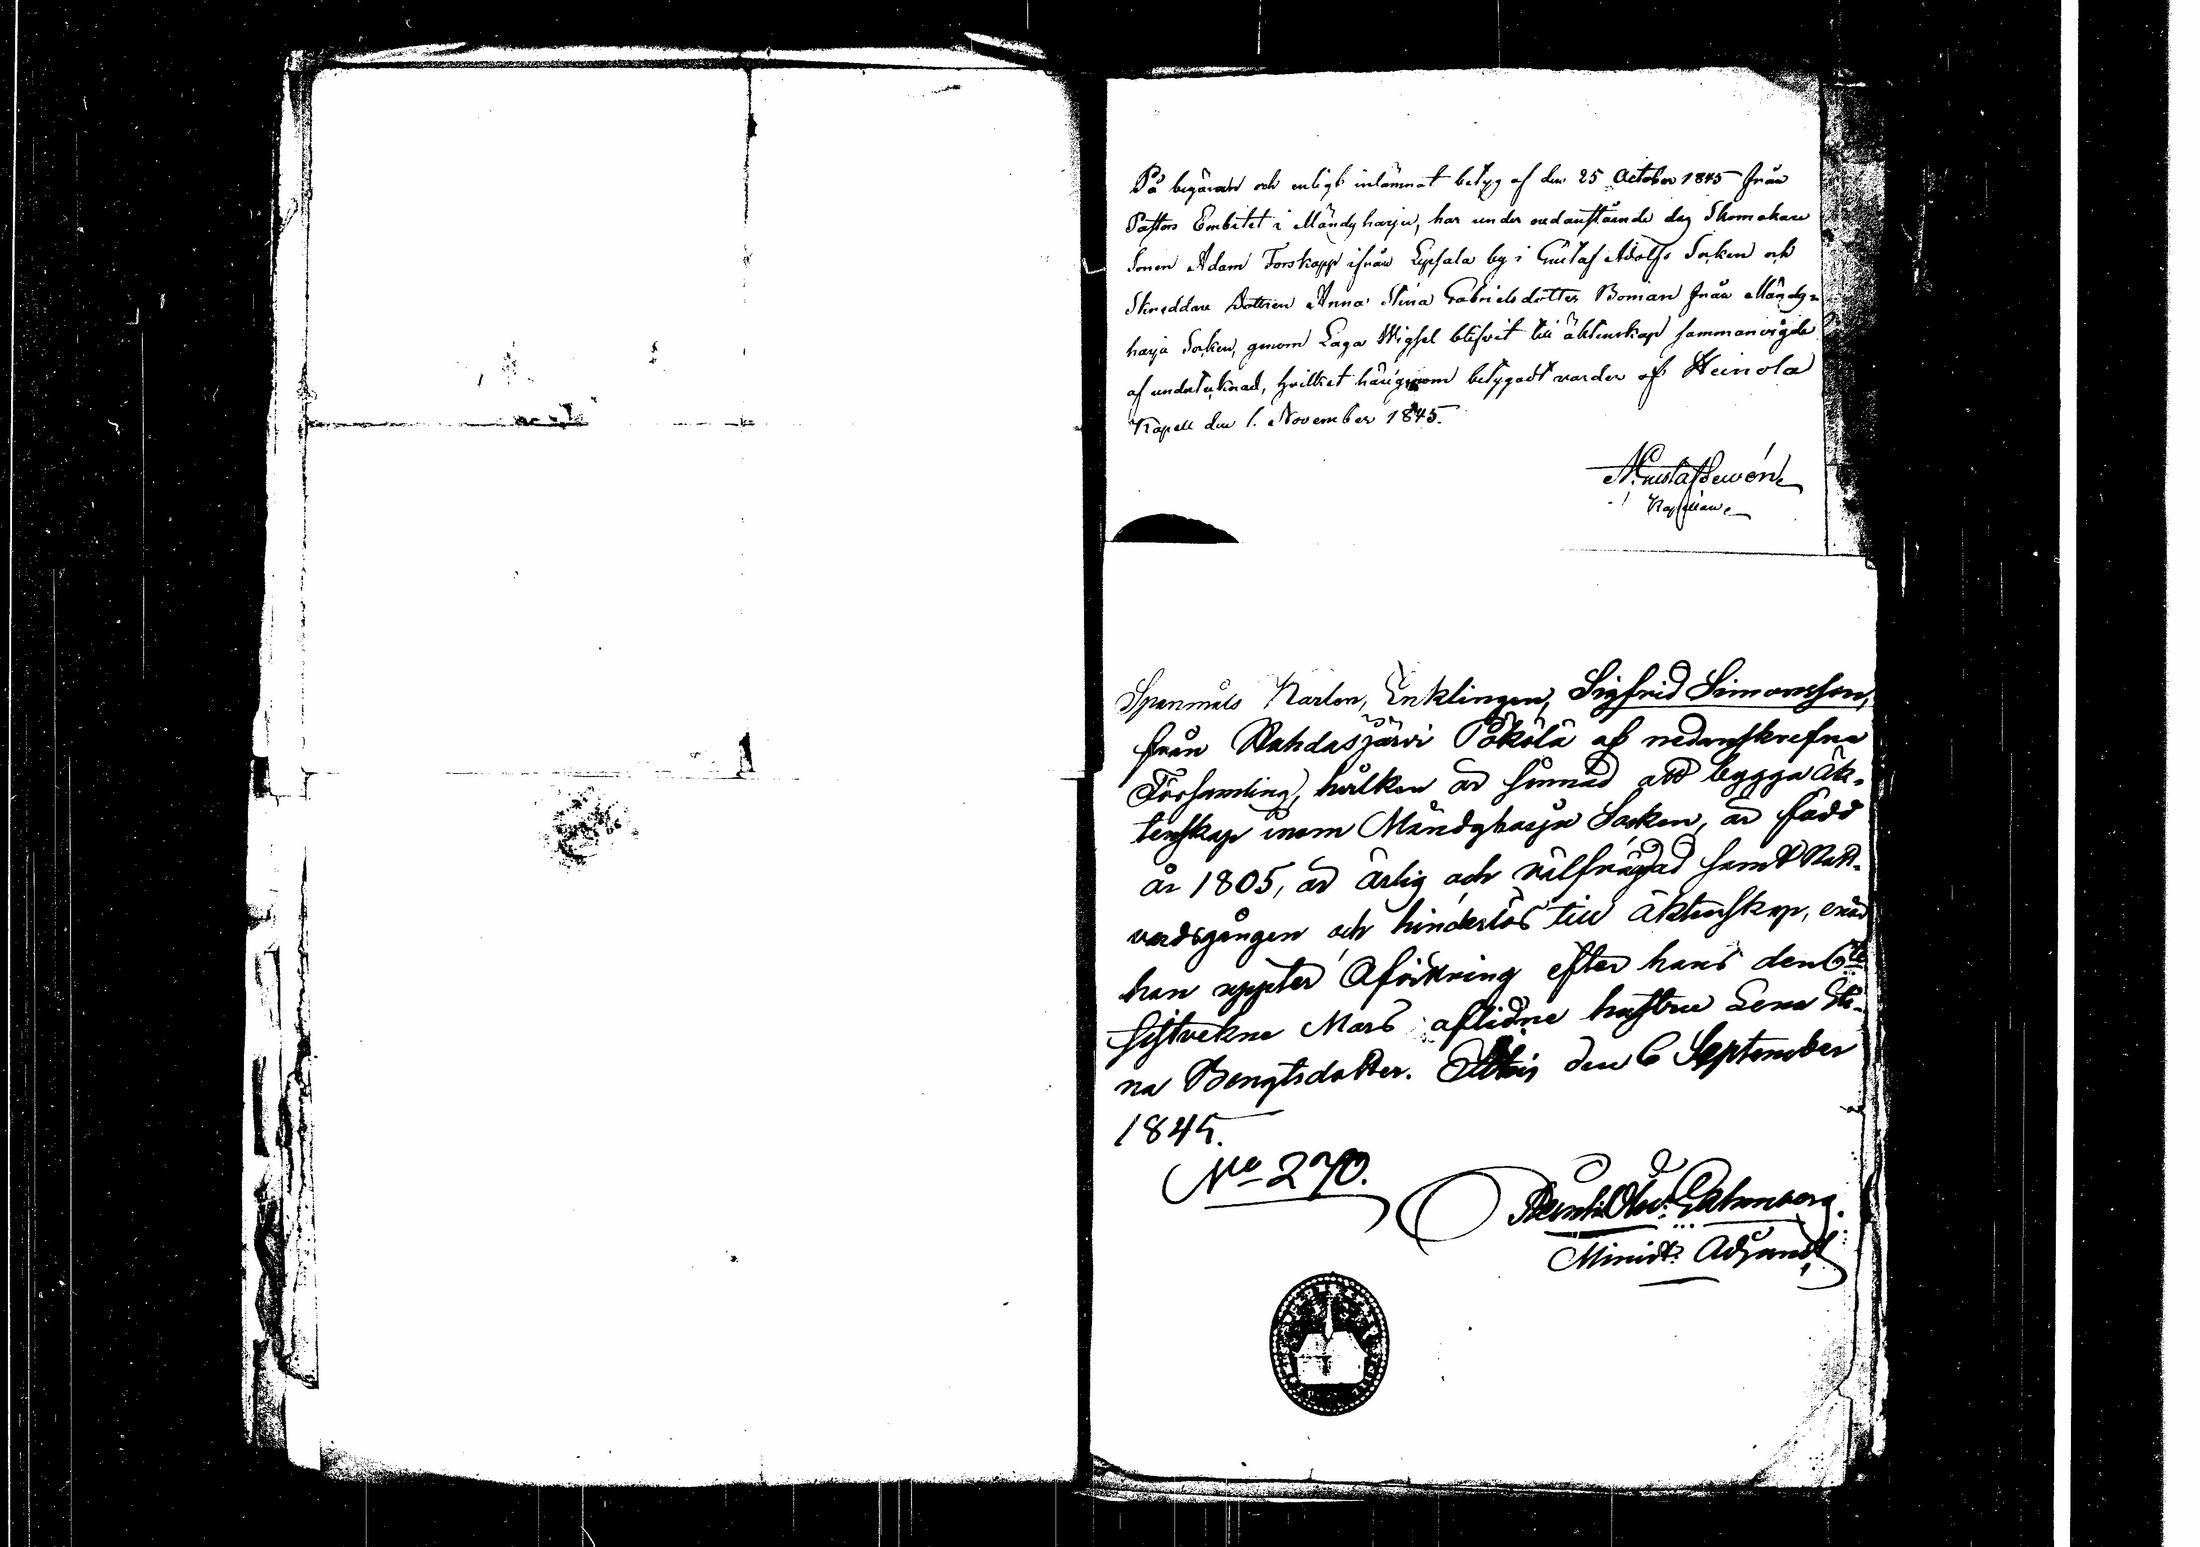 På begäran och enligt inlämnat betyg af den 25 October 1845 från
Pastors Embetet i Mändyharju, har under nedanstående dag Skomakare
Sonen Adam Forskapp ifrån Lepsala by i Gustaf Adolfs Socken och
Skreddare Dottren Anna Stina Gabrielsdotter Boman från Mändy-
harju Socken, genom Laga Wigsel blifvit till äktenskap sammanvigde
af undertecknad, hvilket härigenom betygadt varder af Heinola
Kapell den 1. November 1845.
N. Gustaf
Kapellan
Spanmåls Karlen, Enklingen, Sigfrid Simonsson,
från Wahdasjärvi Pököla af nedanskrefne
Församling, hvilken är sinnad att bygga äk-
tenskap inom Mändyharju Socken, är född
år 1805, är ärlig och välfrägdad samt Natt-
vardsgången och hinderlös till äktenskap, enär
han uppter Afvittring efter hans den 6te
sistvekne Mars aflidne hustru Lena Sti-
na Bengtsdotter. den 6 September
1845.
No 270.
Minist: Adjunct